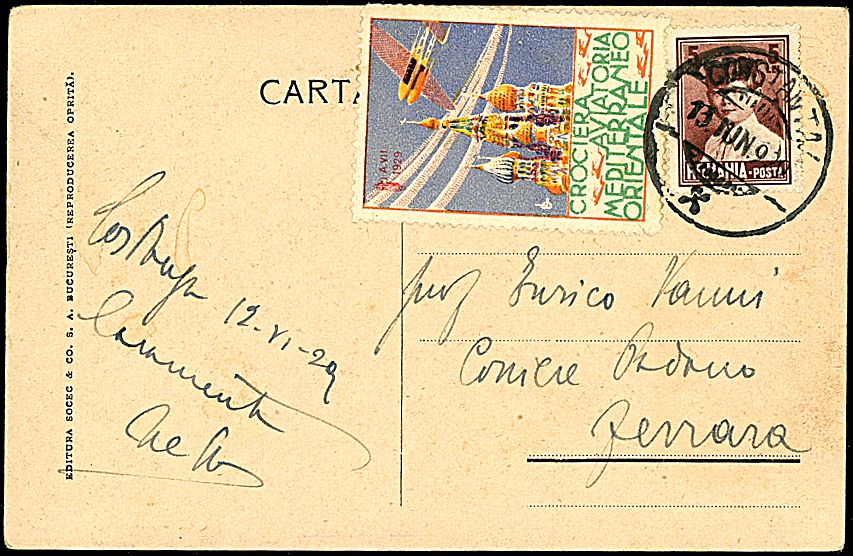 EDITURA SOCEC & CO. S. A. BUCUREȘTI (REPRODUCEREA OPRITĂ).
CARTA
CROCIERA
AVIATORIA
MEDITERRANEO
ORIENTALE
A. VII
1929
5 5
ROMANIA-POSTA
CONSTANTA
13 IUN 9
12-VI-29
Prof Enrico Vanni
Corriere Padano
Ferrara